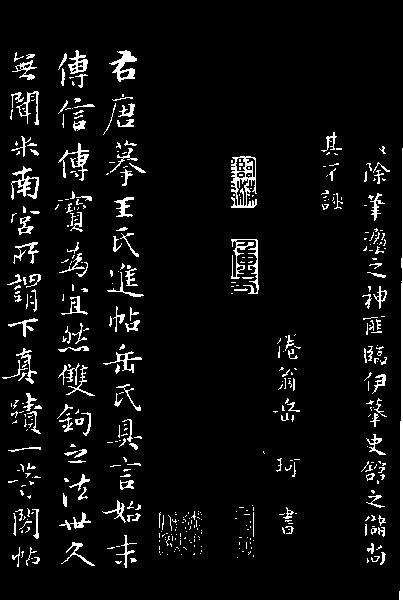 除筆之神匪臨伊摹史館之儲尚
其不誣
倦翁岳珂書
右唐摹王氏進帖岳氏具言始末
傳信傳寶為宜然雙鉤之法世久
無聞米南宮所謂下真蹟一等閣帖